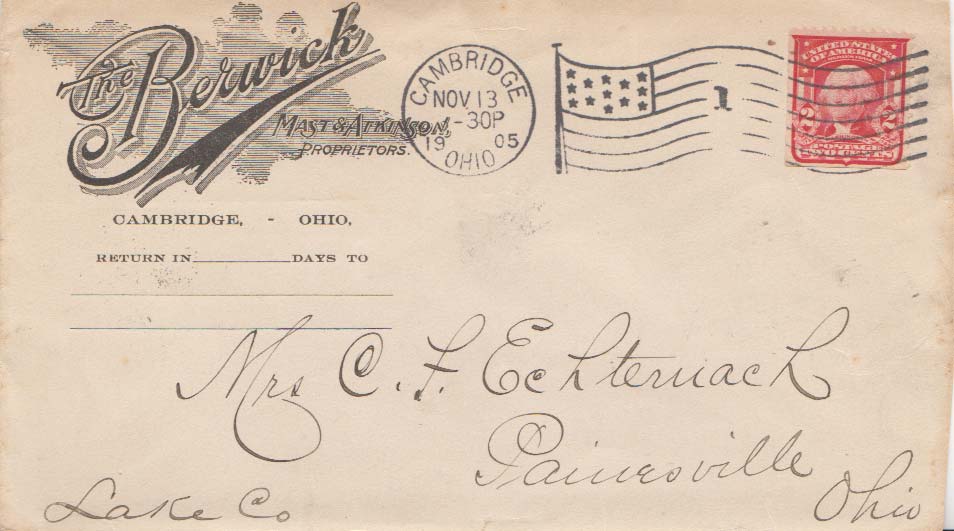 The Berwick
MAST & ATKINSON,
PROPRIETORS.
CAMBRIDGE, - OHIO,
RETURN IN____________DAYS TO
CAMBRIDGE
NOV 13
-30P
19 05
OHIO
1
UNITED STATES
OF AMERICA
2 2
POSTAGE
TWO CENTS
Mrs C. F. Echternach
Painesville
Lake Co Ohio